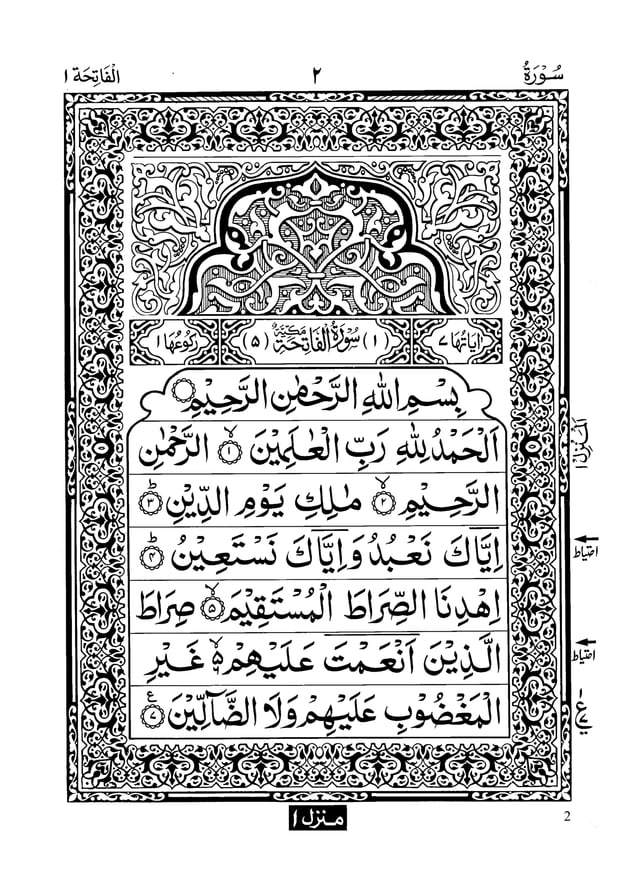 سُوْرَةُ ٢ اَلْفَاتِحَة ١
اٰيَاتُهَا ٧ (١) سُوْرَةُ الْفَاتِحَةِ مَكِّيَّةٌ (٥) رُكُوْعُهَا ١
بِسْمِ اللّٰهِ الرَّحْمٰنِ الرَّحِيْمِ
اَلْحَمْدُ لِلّٰهِ رَبِّ الْعٰلَمِيْنَ ۙ﴿١﴾ الرَّحْمٰنِ
الرَّحِيْمِ ۙ﴿٢﴾ مٰلِكِ يَوْمِ الدِّيْنِ ؕ﴿٣﴾
اِيَّاكَ نَعْبُدُ وَاِيَّاكَ نَسْتَعِيْنُ ؕ﴿٤﴾
اِهْدِنَا الصِّرَاطَ الْمُسْتَقِيْمَ ۙ﴿٥﴾ صِرَاطَ
الَّذِيْنَ اَنْعَمْتَ عَلَيْهِمْ ۙ۵ غَيْرِ
الْمَغْضُوْبِ عَلَيْهِمْ وَلَا الضَّآلِّيْنَ ﴿٧﴾ ع
اَلْمَنْزِل ١
احتیاط
احتیاط
منزل ١
2